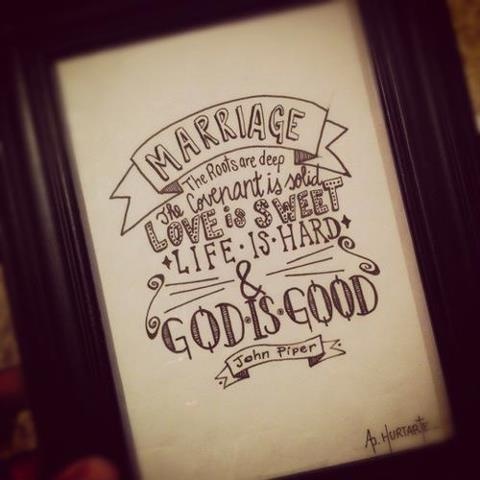 MARRIAGE
The Roots are deep
The Covenant is solid
LOVE is SWEET
LIFE·IS·HARD
&
GOD·IS·GOOD
John Piper
Ap. HURTARTE